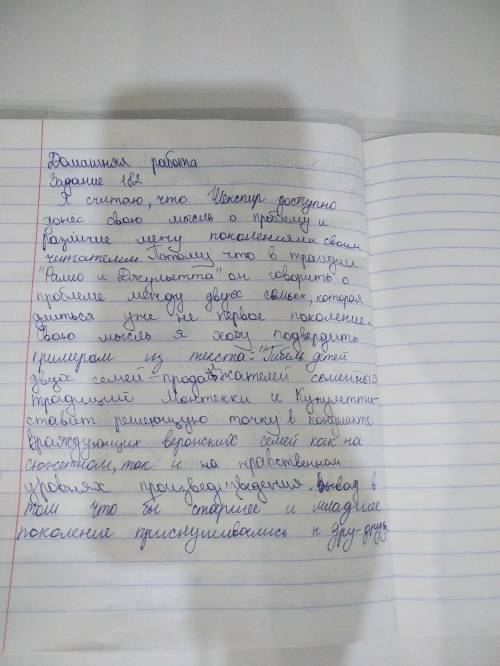 Домашняя работа
Задание 182
Я считаю, что Шекспир доступно
донёс свою мысль о проблему и
различие межу поколениями своим
читателем. Потому что в трагидии
"Рамео и Джульетта" он говорить о
проблеме между двух семьех, которая
длиться уже не первое поколение.
Свою мысль я хочу подвердить
примером из текста: "Гибель детей
двух семей - продалжателей семейных
традиций Монтекки и Капулетти-
стават решеющую точку в конфликте
враждующих веронских семей как на
сюжетном, так и на нравственном
уровнях произведизведения. Вывод в
том что бы старшее и младшее
поколение прислушивались к дру-другу